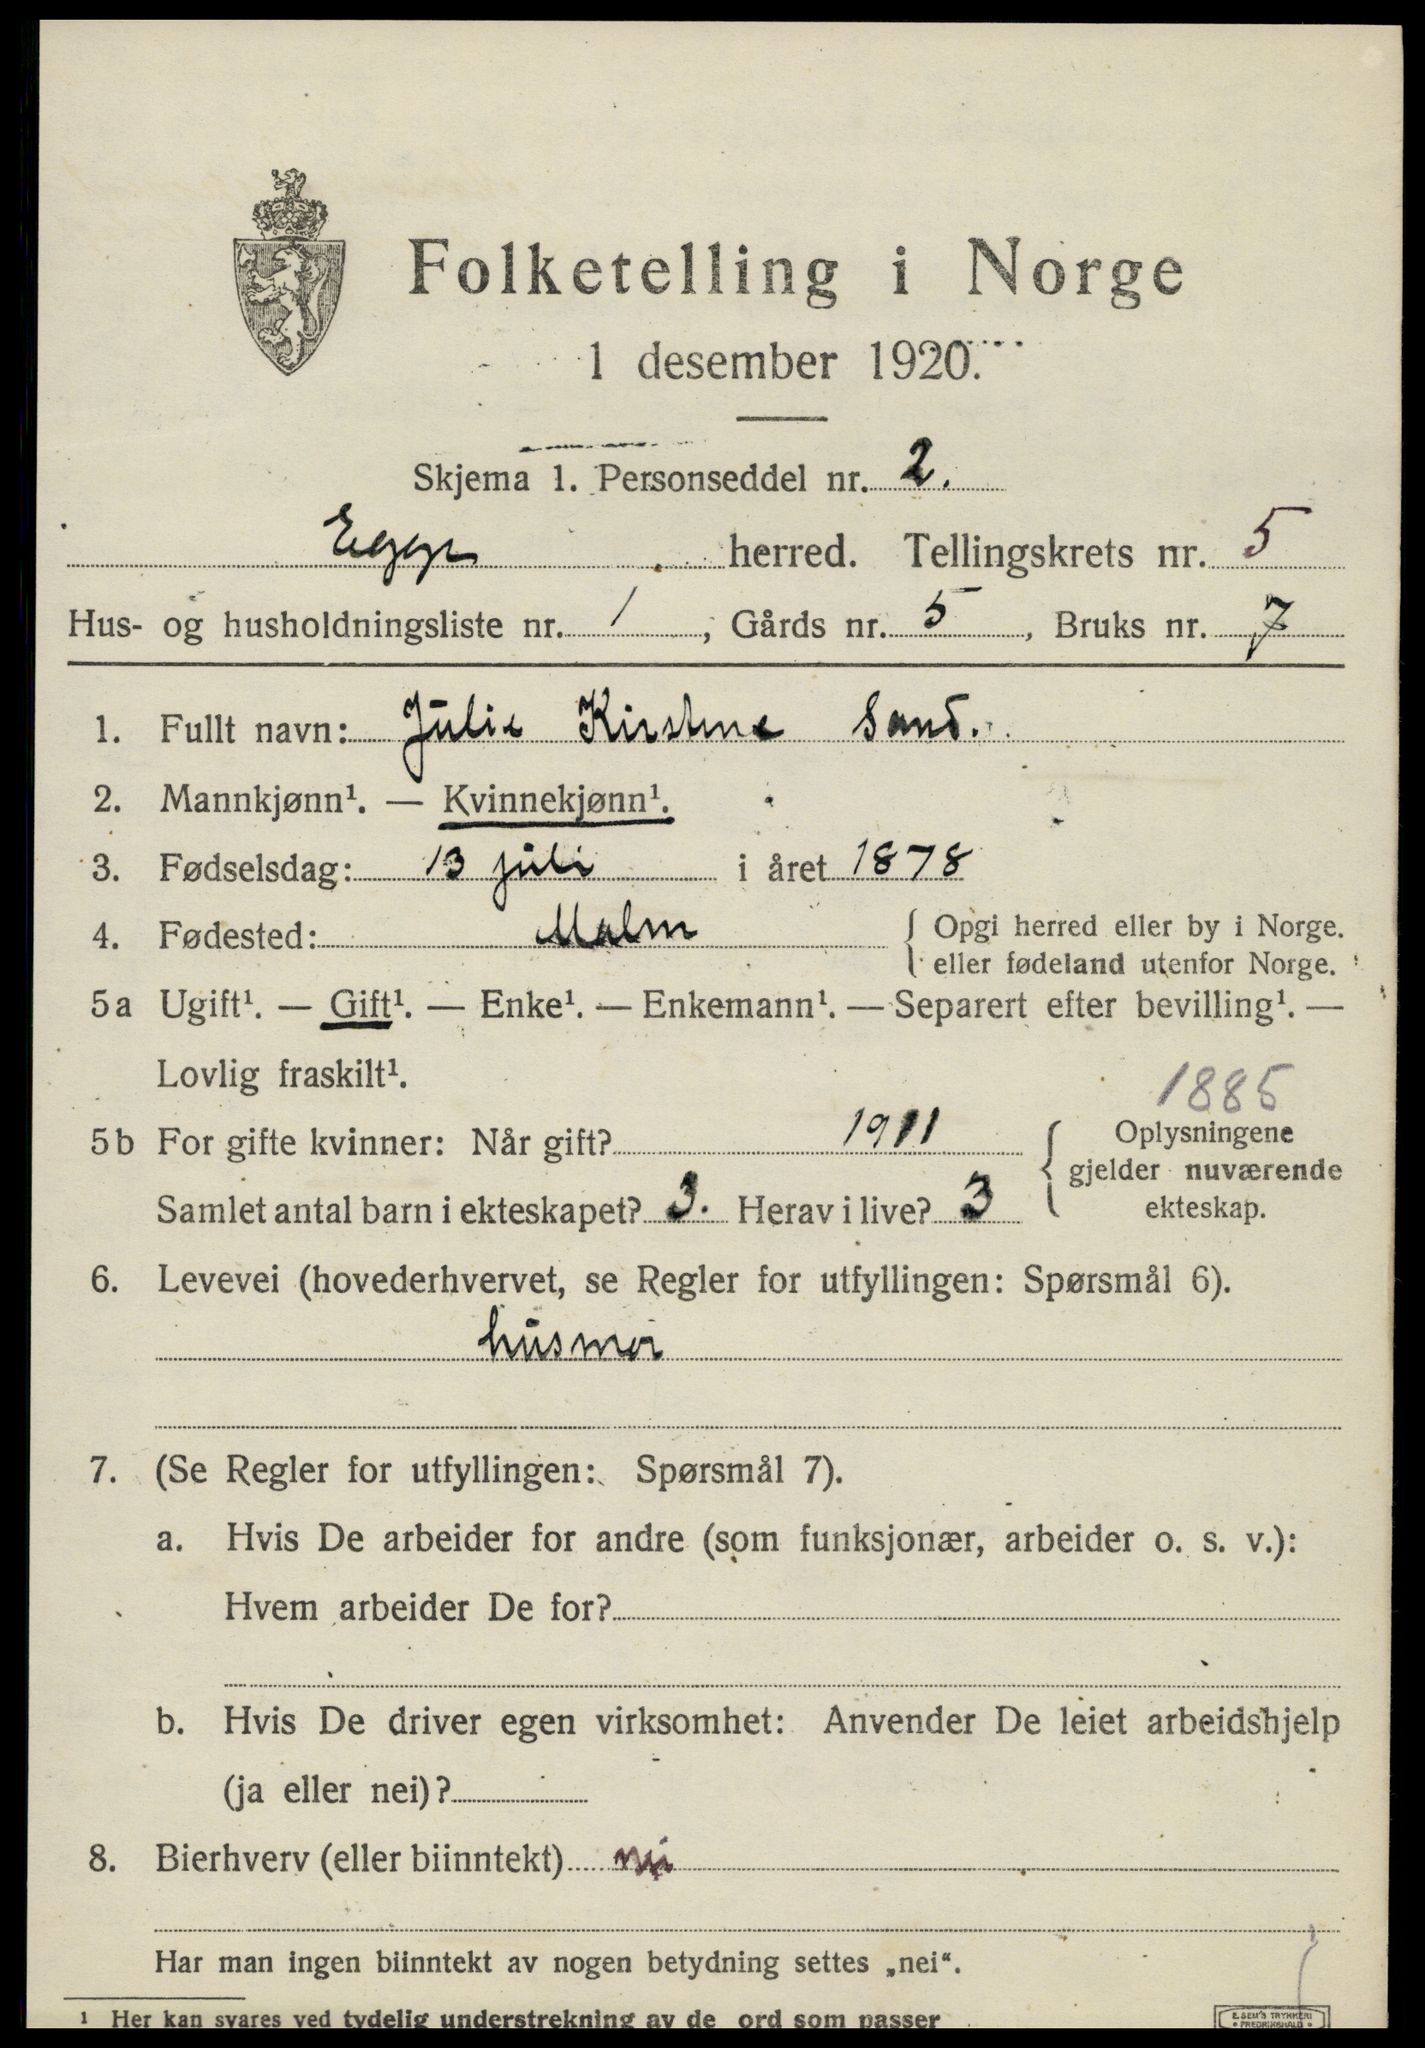 Folketelling i Norge
1 desember 1920.
Skjema 1. Personseddel nr. 2.
Egge herred. Tellingskrets nr. 5
Hus- og husholdningsliste nr. 1, Gårds nr. 5, Bruks nr. 7
1. Fullt navn: Julie Kirstine Sand.
2. Mannkjønn¹. — Kvinnekjønn¹.
3. Fødselsdag: 13 juli i året 1878
4. Fødested: Malm { Opgi herred eller by i Norge.
eller fødeland utenfor Norge.
5a Ugift¹. — Gift¹. — Enke¹. — Enkemann¹. — Separert efter bevilling¹. —
Lovlig fraskilt¹.
1885
5b For gifte kvinner: Når gift? 1911 { Oplysningene
gjelder nuværende
Samlet antal barn i ekteskapet? 3. Herav i live? 3 ekteskap.
6. Levevei (hovederhvervet, se Regler for utfyllingen: Spørsmål 6).
husmor
7. (Se Regler for utfyllingen: Spørsmål 7).
a. Hvis De arbeider for andre (som funksjonær, arbeider o. s. v.):
Hvem arbeider De for?
b. Hvis De driver egen virksomhet: Anvender De leiet arbeidshjelp
(ja eller nei)?
8. Bierhverv (eller biinntekt) nei
Har man ingen biinntekt av nogen betydning settes „nei“.
¹ Her kan svares ved tydelig understrekning av de ord som passer
E. SEM'S TRYKKERI
• FREDRIKSHALD •